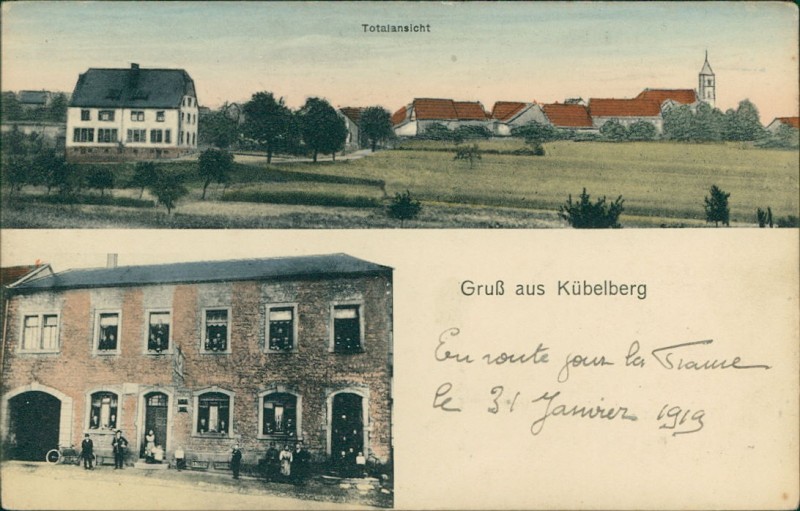 Totalansicht
Gruß aus Kübelberg
En route pour la France
le 31 Janvier 1919